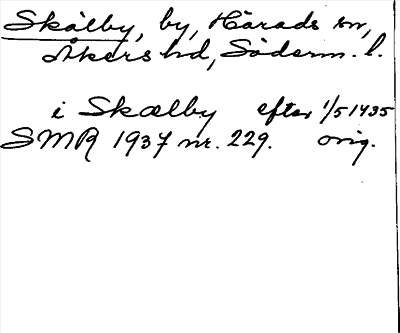 Skälby, by, Härads sn,
Åkers hd, Söderm. l.
i Skælby efter 1/5 1435
SMR 1937 nr. 229. orig.